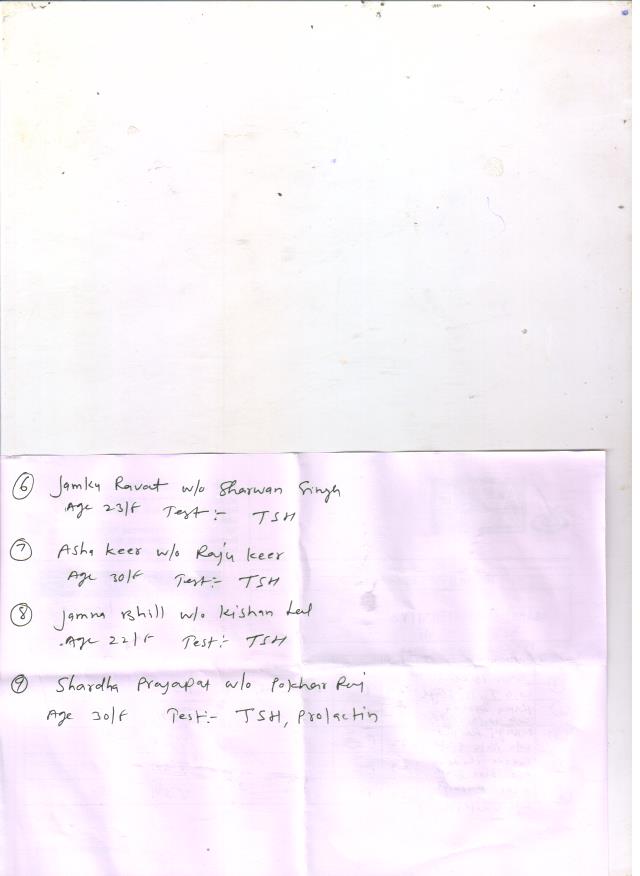 ⑥ Jamku Ravat w/o Sharwan Singh
Age 23/F Test:- TSH
⑦ Asha Keer w/o Raju Keer
Age 30/F Test:- TSH
⑧ Jamna Bhill w/o Kishan Lal
Age 22/F Test:- TSH
⑨ Shardha Prajapat w/o Pokhar Raj
Age 30/F Test:- TSH, Prolactin